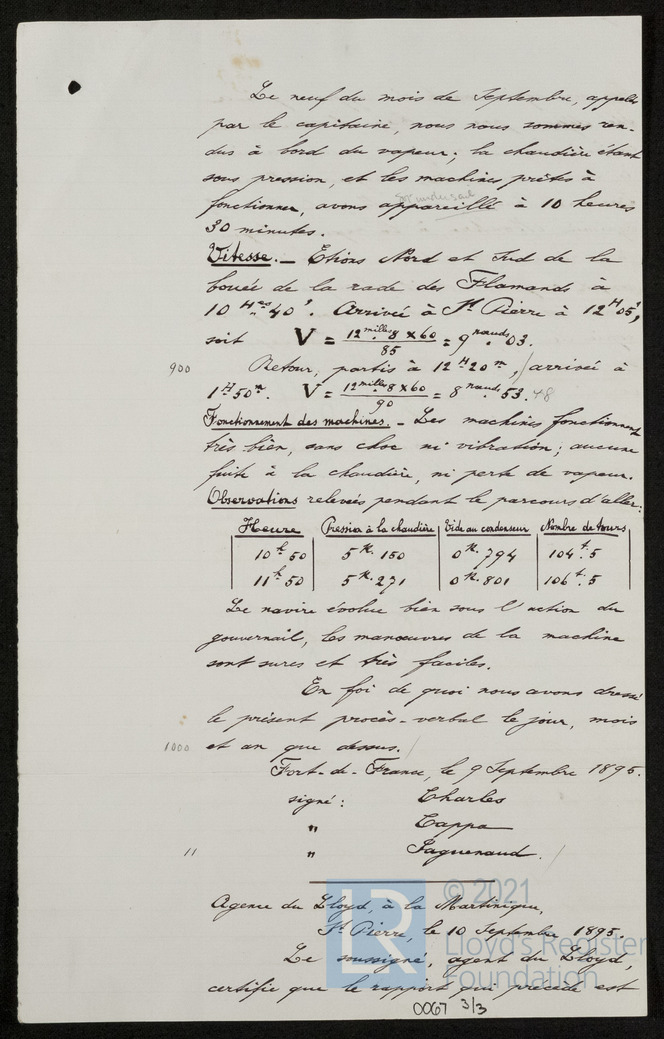 Le neuf du mois de Septembre, appelés
par le capitaine, nous nous sommes ren-
dus à bord du vapeur; la chaudière étant
sous pression, et les machines prêtes à
fonctionner, avons appareillé à 10 heures
30 minutes.
Vitesse. — Etions Nord et Sud de la
bouée de la rade des Flamands à
10 Hres 40'. Arrivée à St Pierre à 12H 05',
soit V = 12 milles 8 x 60 / 85 = 9 nœuds 03.
900 Retour, partis à 12H 20m, / arrivée à
1H 50m. V = 12 milles 8 x 60 / 90 = 8 nœuds 53. 48
Fonctionnement des machines. - Les machines fonctionnent
très bien, sans choc ni vibration; aucune
fuite à la chaudière, ni perte de vapeur.
Observations relevées pendant le parcours d'aller:
Heure | Pression à la chaudière | Vide au condenseur | Nombre de tours
10h 50 | 5K. 150 | 0K. 794 | 104t. 5
11h 50 | 5K. 271 | 0K. 801 | 106t. 5
Le navire évolue bien sous l'action du
gouvernail, les manœuvres de la machine
sont sures et très faciles.
En foi de quoi nous avons dressé
le présent procès-verbal le jour, mois
1000 et an que dessus. /
Fort-de-France, le 9 Septembre 1895.
signé: Charles
" Cappa
11 " Saguenaud. /
Agence du Lloyd, à la Martinique,
St Pierre, le 10 Septembre 1895.
Le soussigné, agent du Lloyd,
certifie que le rapport qui précède est
0067 3/3
LR © 2021
Lloyd's Register
Foundation